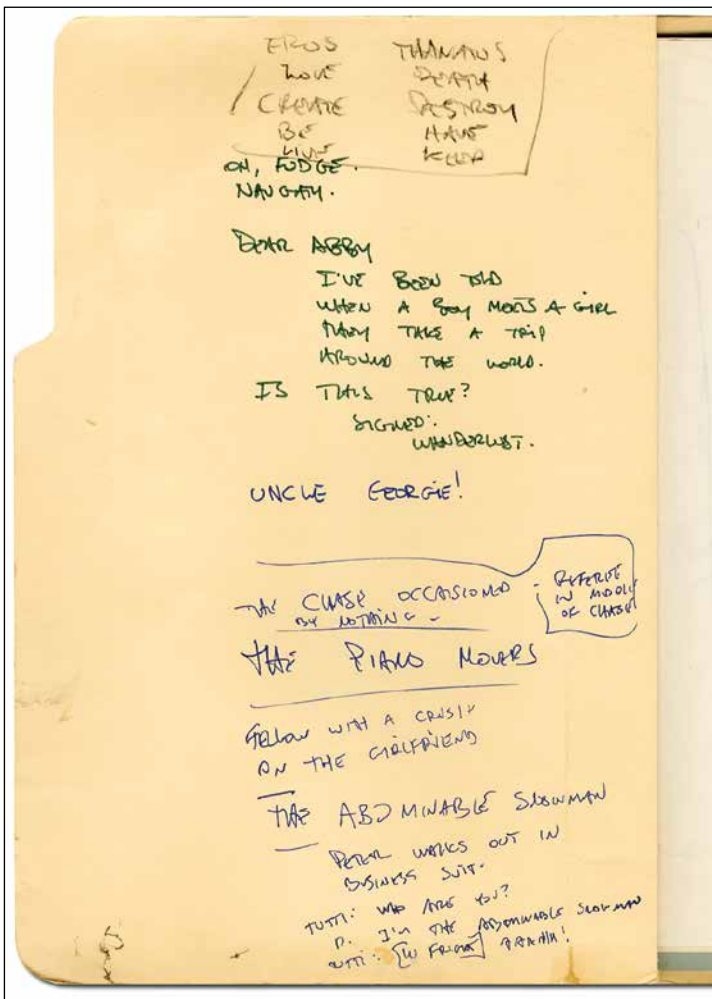 EROS THANATOS
LOVE DEATH
CREATE DESTROY
BE HAVE
LIVE
OH, FUDGE.
NAUGATY.
DEAR ABBY
I'VE BEEN TOLD
WHEN A BOY MEETS A GIRL
THEY TAKE A TRIP
AROUND THE WORLD.
IS THIS TRUE?
SIGNED:
WANDERLUST.
UNCLE GEORGIE!
THE CHASE OCCASIONED
BY NOTHING -
- REFEREE
IN MIDDLE
OF CHASE
THE PIANO MOVERS
FELLOW WITH A CRUSH
ON THE GIRLFRIEND
THE ABOMINABLE SLOWMAN
PETER WALKS OUT IN
BUSINESS SUIT.
TUTTI: WHO ARE YOU?
P. I'M THE ABOMINABLE SLOWMAN
TUTTI: [IN FRIGHT]